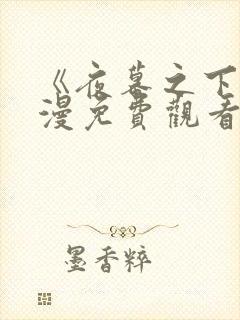 《夜幕之下
漫免費觀看
墨香粹